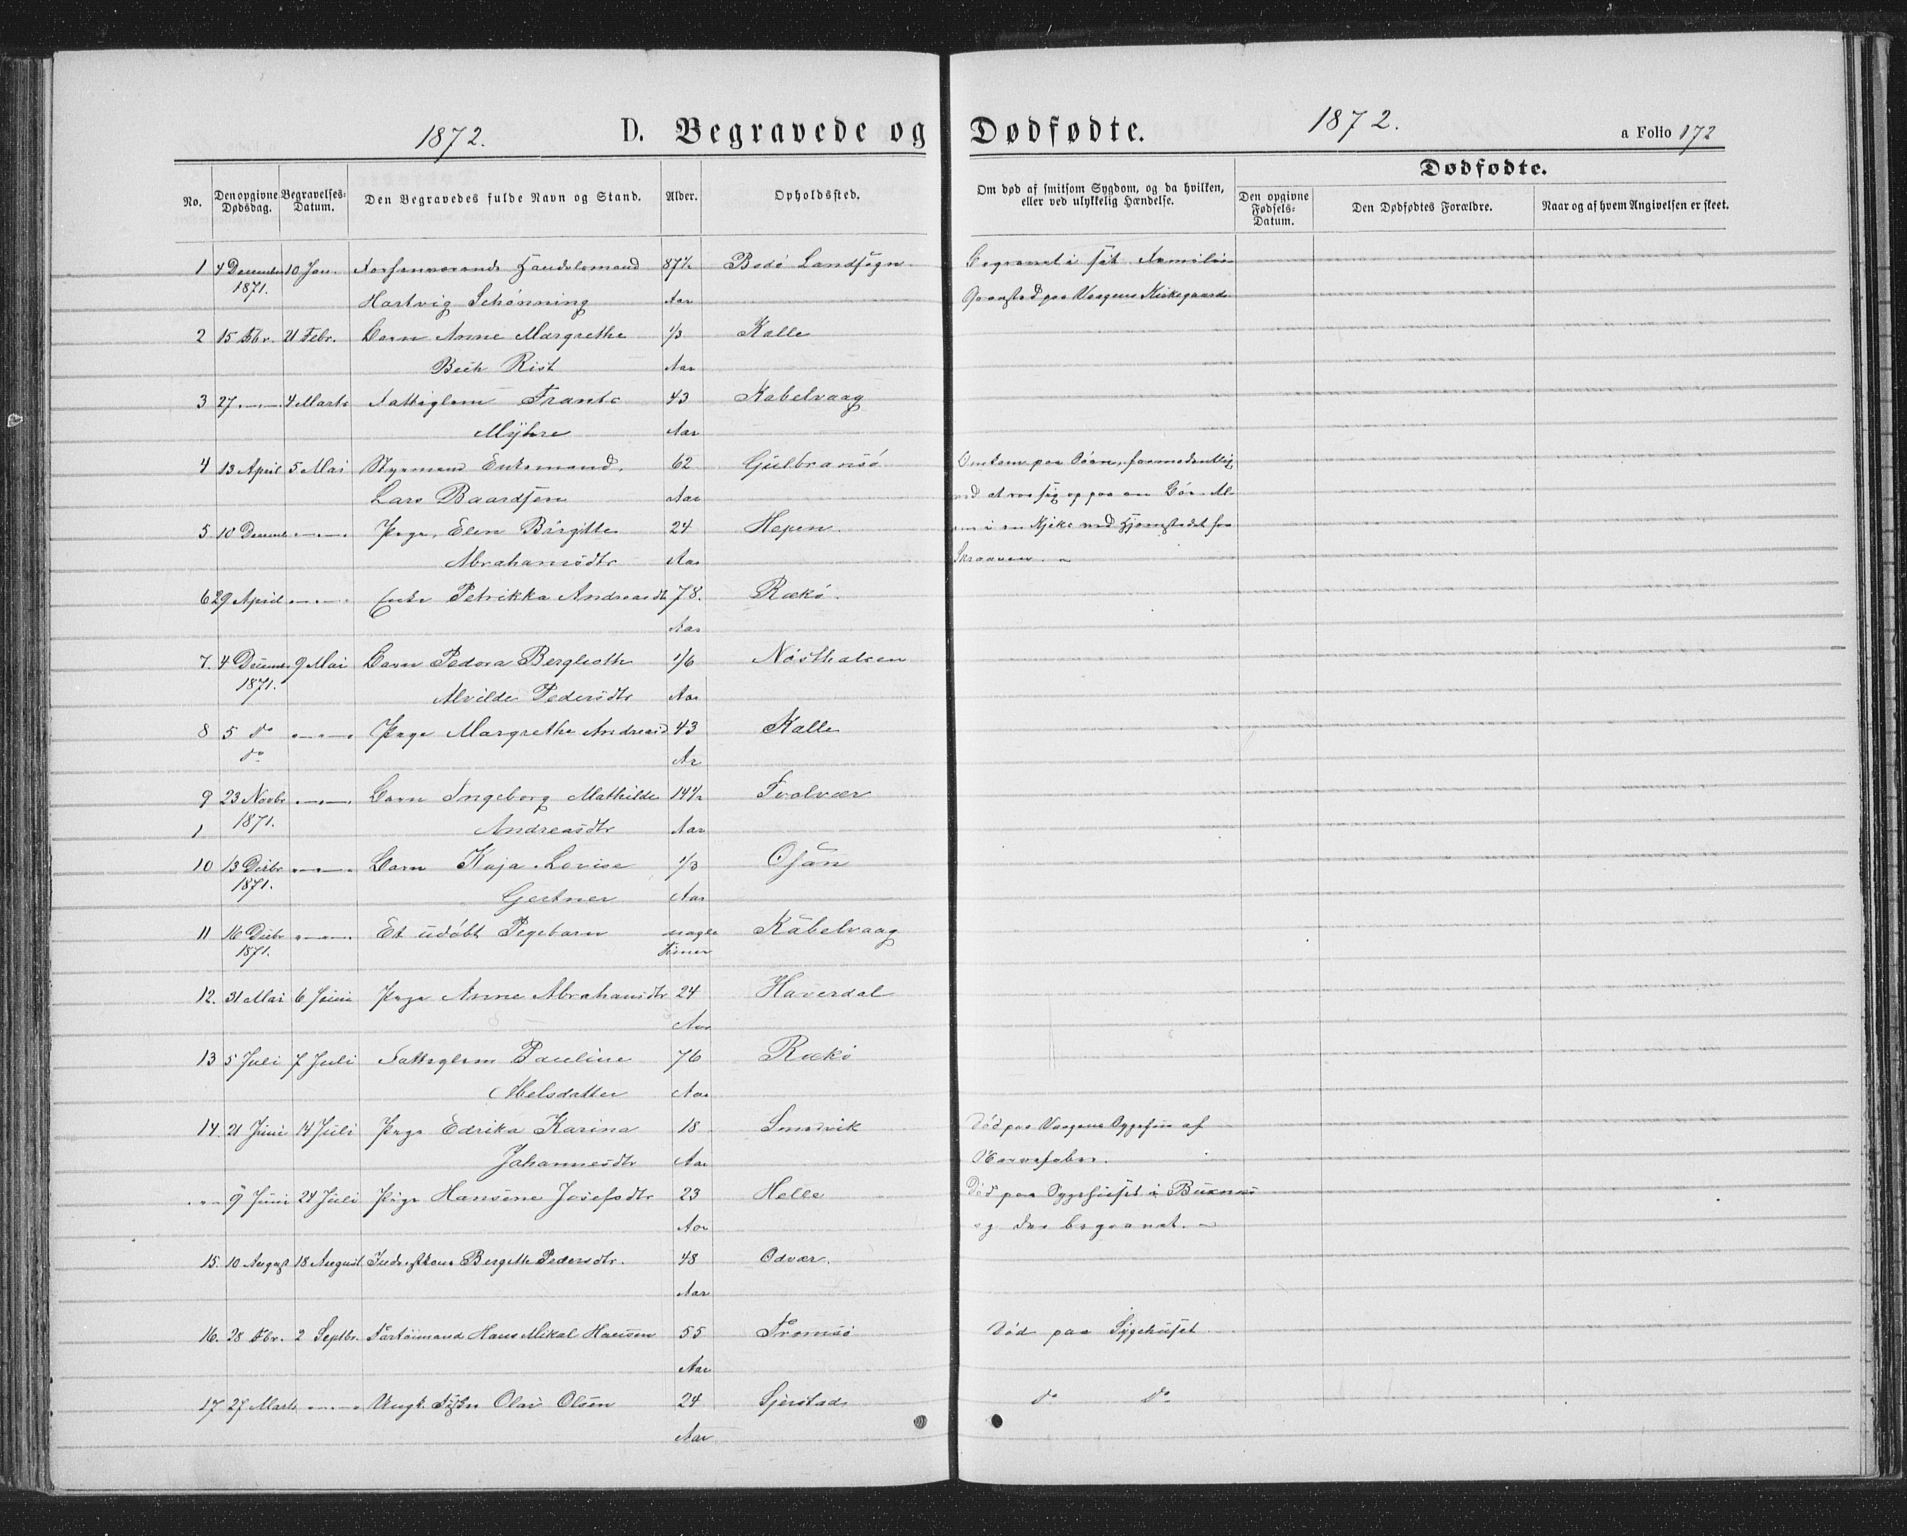 1872. D. Begravede og Dødfødte. 1872. a Folio 172
Dødfødte.
No. Den opgivne Dødsdag. Begravelses-Datum. Den Begravedes fulde Navn og Stand. Alder. Opholdssted. Om død af smitsom Sygdom, og da hvilken, eller ved ulykkelig Hændelse. Den opgivne Fødsels-Datum. Den Dødfødtes Forældre. Naar og af hvem Angivelsen er skeet.
1 4 December 10 Jan. Forhenværende Handelsmand 87½ Bodø Landsogn Begravet i sit Familie
1871. Hartvig Schønning Aar Gravsted paa Vaagens Kirkegaard
2 15 Fbr. 21 Febr. Barn Anne Margrethe 1/3 Kalle
Beck Rist Aar
3 27 — 4 Marts Fattiglem Frants 43 Kabelvaag
Myhre Aar
4 13 April 5 Mai Styrmand Enkemand. 62 Gulbransø Omkom paa Søen, formodentlig
Lars Baardsen Aar ved at
5 10 Decemb. — Pige, Elen Birgitte 24 Hopen
Abrahamsdtr Aar Skraaven.
6 29 April — Enke Petrikka Andreasdt 78. Rækø.
Aar
7. 4 Decembr 9 Mai Barn Pedora Bergleoth 1/6 Nøsthalsen
1871. Alvilde Pedersdtr Aar
8 5 do — Pige Margrethe Andreasd 43 Kalle
do Ar
9 23 Novbr — Barn Ingeborg Mathilde 14½ Svolvær
1 1871. Andreasdtr Aar
10 13 Decbr — Barn Kaja Lovise 1/3 Osan
1871. Gertner Aar
11 16 Decbr — Et udøbt Pigebarn nogle Kabelvaag
1871. Timer
12. 31 Mai 6 Juni Pige Anne Abrahamsdtr 24 Haverdal
Aar
13 5 Juli 7 Juli Fattiglem Pauline 76 Rækø
Melsdatter Aar
14. 21 Juni 14 Juli Pige Edrika Karina 18 Smedvik Død paa Vaagens Sygehus af
Johannesdtr Aar Nervefeber.
— 9 Juni 24 Juli Pige Hansine Josefsdtr 23 Helle Død paa Sygehuset i Buxnæs
Aar og der begravet. —
15. 10 August 18 August Inderstkone Bergitte Pedersdtr. 48 Odvær.
Aar
16. 28 Fbr. 2 Septbr. Fartøimand Hans Mikal Hansen 55 Tromsø Død paa Sygehuset
Aar
17 27 Marts — Ungk. Fisker Olai Olsen 24 Sjerstad do do
Aar